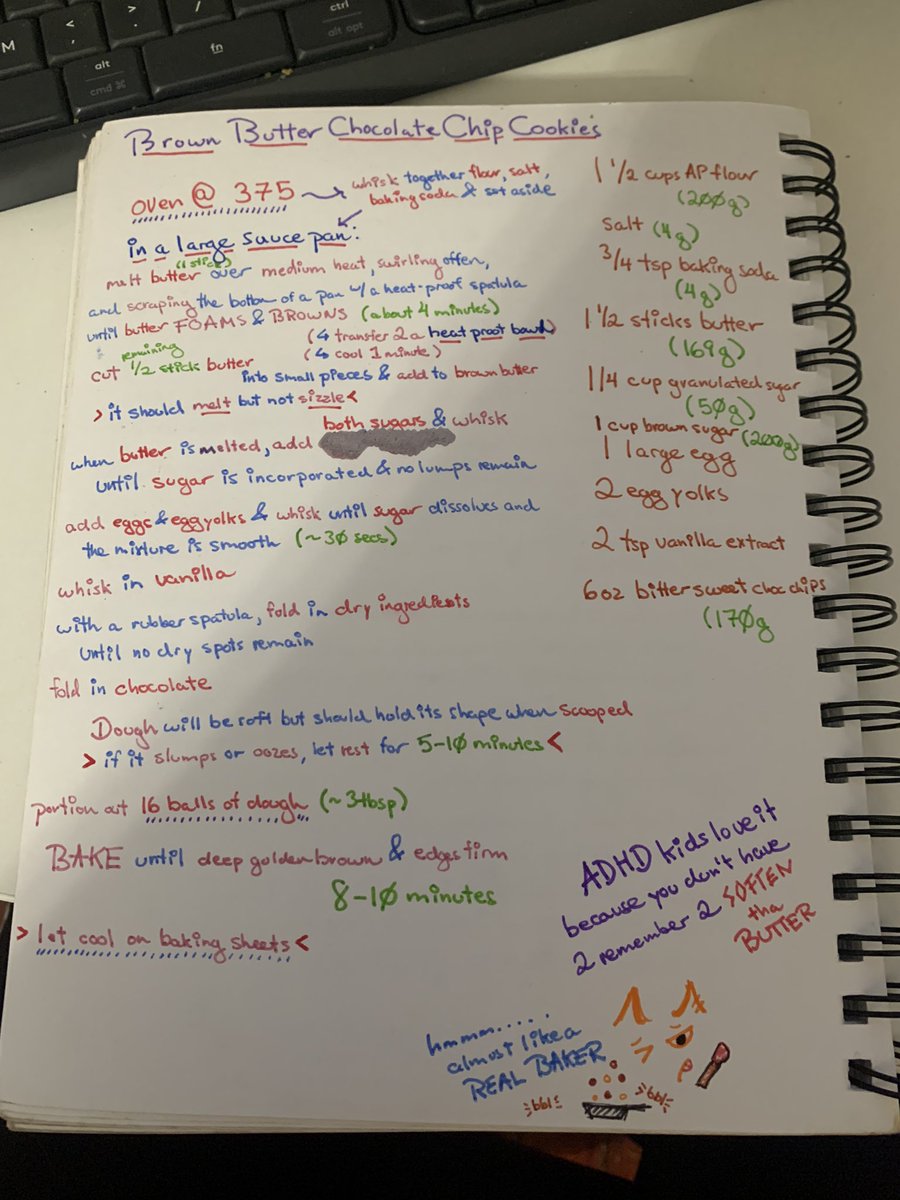 M
<
,
>
.
/
ctrl
alt opt
fn
alt
cmd ⌘
Brown Butter Chocolate Chip Cookies
oven @ 375
whisk together flour, salt,
baking soda & set aside
in a large sauce pan:
(1 stick)
melt butter over medium heat, swirling often,
and scraping the bottom of a pan w/a heat-proof spatula
until butter FOAMS & BROWNS (about 4 minutes)
(↳ transfer 2 a heat proof bowl)
(↳ cool 1 minute)
remaining
cut 1/2 stick butter
into small pieces & add to brown butter
> it should melt but not sizzle <
both sugars & whisk
when butter is melted, add
until sugar is incorporated & no lumps remain
add eggs & egg yolks & whisk until sugar dissolves and
the mixture is smooth (~30 secs)
whisk in vanilla
with a rubber spatula, fold in dry ingredients
until no dry spots remain
fold in chocolate
Dough will be soft but should hold its shape when scooped
> if it slumps or oozes, let rest for 5-10 minutes <
portion out 16 balls of dough (~3 tbsp)
BAKE until deep golden brown & edges firm
8-10 minutes
> let cool on baking sheets <
1 1/2 cups AP flour
(200g)
salt (4g)
3/4 tsp baking soda
(4g)
1 1/2 sticks butter
(169g)
1/4 cup granulated sugar
(50g)
1 cup brown sugar (200g)
1 large egg
2 egg yolks
2 tsp vanilla extract
6oz bittersweet choc chips
(170g
ADHD kids love it
because you don't have
2 remember 2 SOFTEN
tha
BUTTER
hmmm.....
almost like a
REAL BAKER